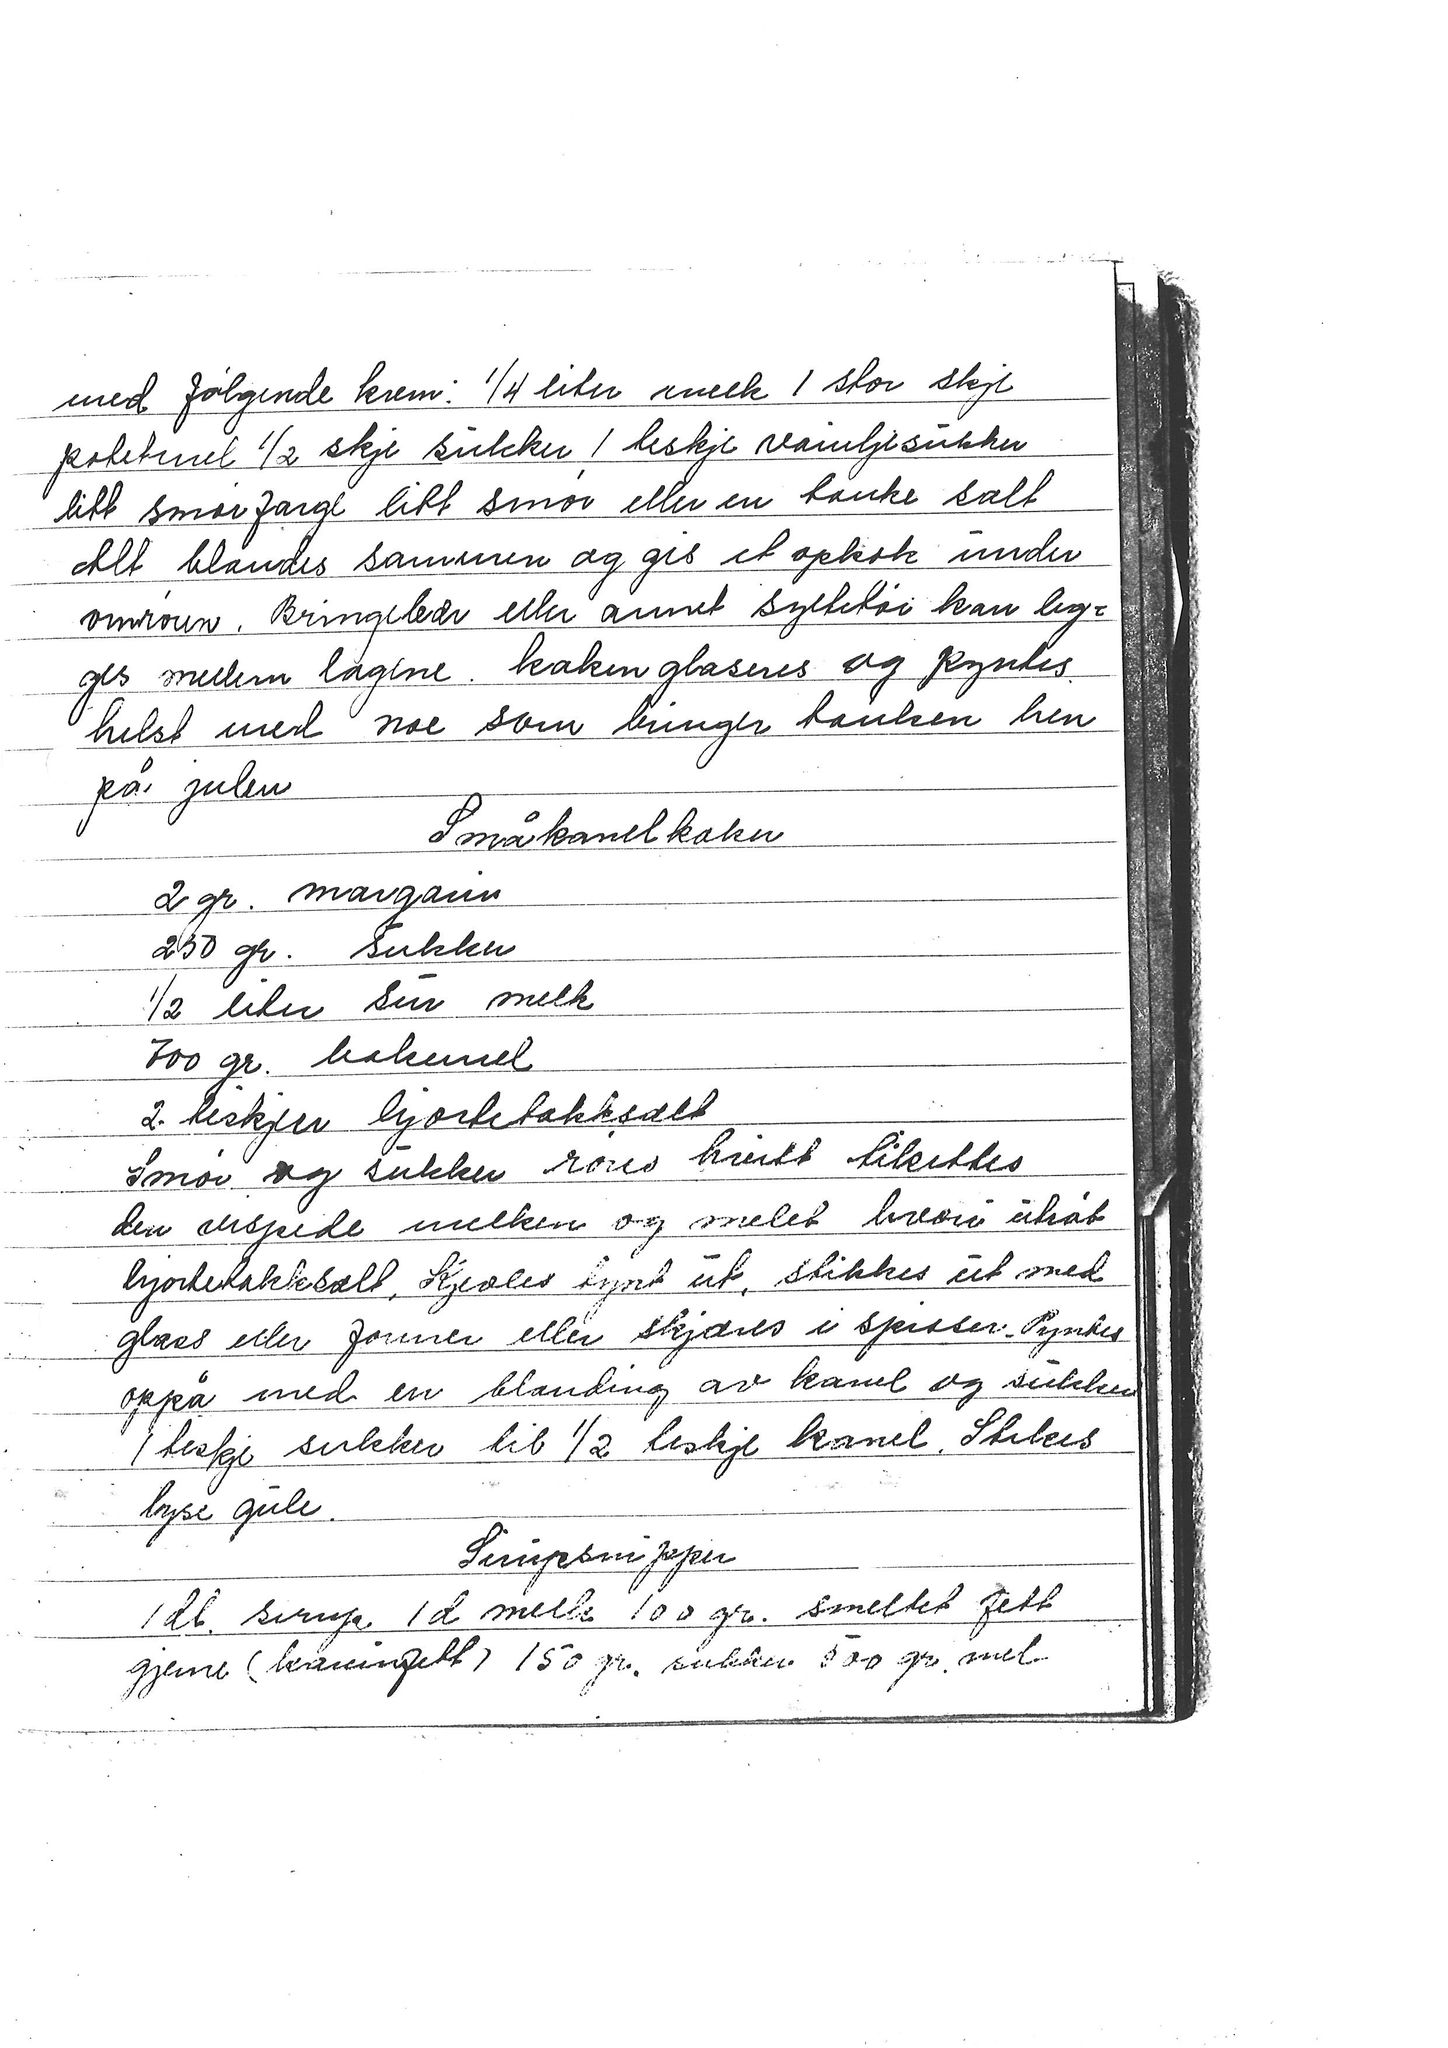 med følgende krem: 1/4 liter melk 1 stor skje
potetmel 1/2 skje sukker 1 teskje vaniljesukker
litt smørfarge litt smør eller en tanke salt
Alt blandes sammen og gis et opkok under
omrøren. Bringebær eller annet syltetøi kan leg=
ges mellem lagene. kaken glaseres og pyntes
helst med noe som bringer tanken hen
på julen
Småkanelkaker
2 gr. margarin
250 gr. sukker
1/2 liter sur melk
700 gr. hvetemel
2 teskjeer hjortetakksalt
Smør og sukker røres hvitt tilsettes
den melken og melet hvori
hjortetakksalt. Kjevles tynt ut, stikkes ut med
glass eller former eller skjæres i spisser. Pyntes
oppå med en blanding av kanel og sukker
1 teskje sukker til 1/2 teskje kanel. Stekes
lyse gule.
Sirupsnipper
1 dl. sirup 1 d melk 100 gr. smeltet fett
gjerne 150 gr. sukker 500 gr. mel